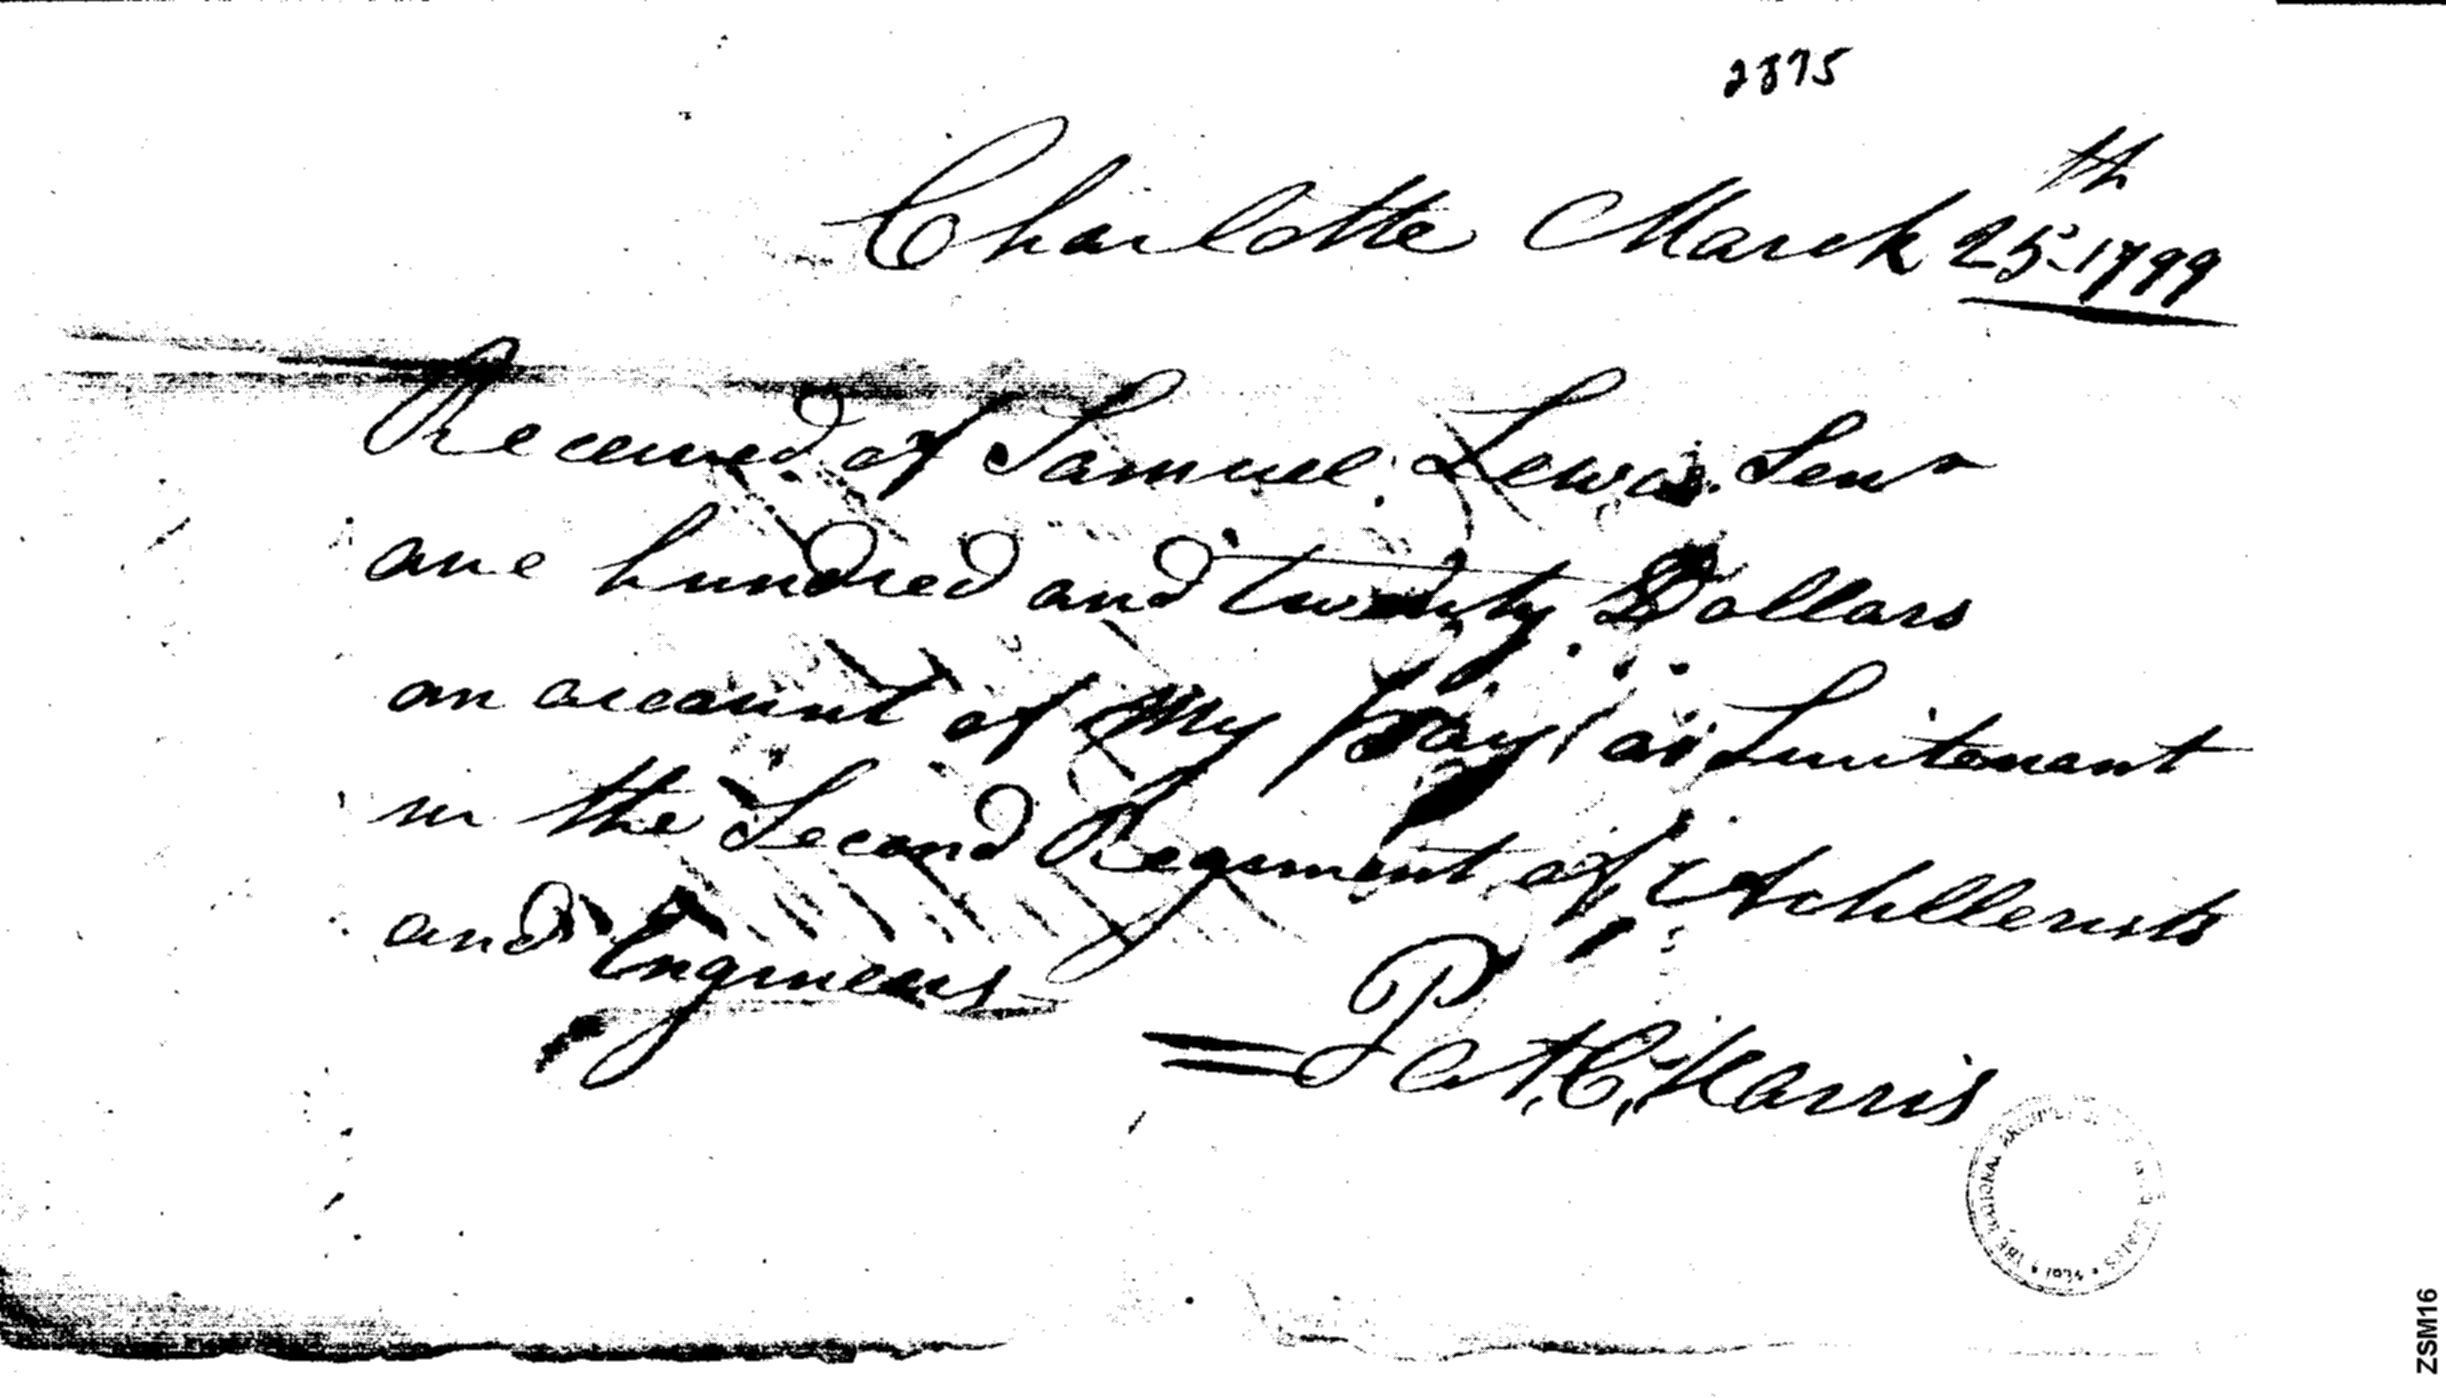 2875
Charlotte March 25th 1799
Received of Samuel Lewis Senr
one hundred and twenty Dollars
on account of My pay as Lieutenant
in the Second Regiment of Artillerists
and Engineers
Pet. C. Harris
THE NATIONAL ARCHIVES OF THE UNITED STATES
ZSM16